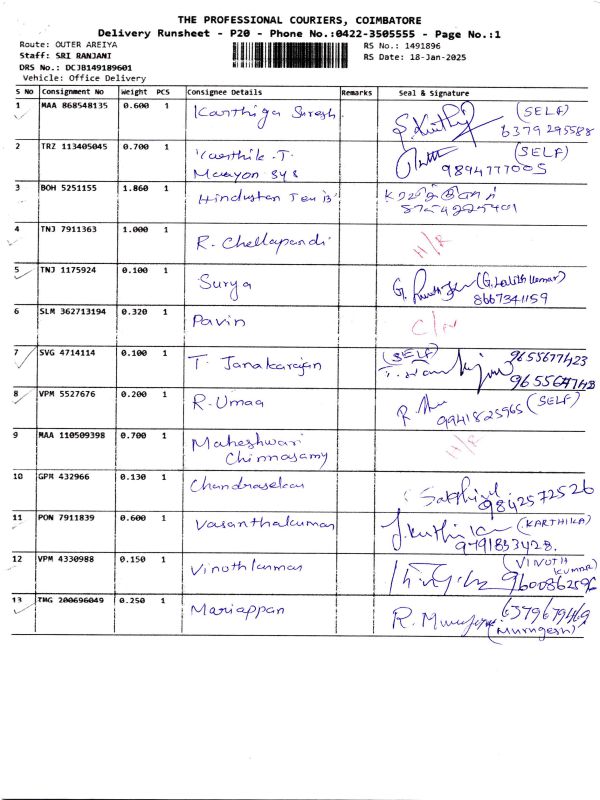 THE PROFESSIONAL COURIERS, COIMBATORE
Delivery Runsheet - P20 - Phone No.:0422-3505555 - Page No.:1
Route: OUTER AREIYA
RS No.: 1491896
Staff: SRI RANJANI
RS Date: 18-Jan-2025
DRS No.: DCJB149189601
Vehicle: Office Delivery
S No Consignment No Weight PCS Consignee Details Remarks Seal & Signature
1 MAA 868548135 0.600 1 Karthiga Suresh (SELF)
6379295588
2 TRZ 113405045 0.700 1 Karthik.T (SELF)
Maayon sys 9894777005
3 BOH 5251155 1.860 1 Hindustan
4 TNJ 7911363 1.000 1 R. Chellapandi H/R
5 TNJ 1175924 0.100 1 Surya (G.Lalith Kumar)
8667341159
6 SLM 362713194 0.320 1 Pavin
7 SVG 4714114 0.100 1 T. Janakarajan (SELF) 9655677423
8 VPM 5527676 0.200 1 R.Umaa 9941825965 (SELF)
9 MAA 110509398 0.700 1 Maheshwari H/R
Chinnasamy
10 GPM 432966 0.130 1 Chandrasekar Sakthivel
9842572526
11 PON 7911839 0.600 1 Vasanthakumar (KARTHIKA)
9791853428.
12 VPM 4330988 0.150 1 Vinothkumar (VINOTH
KUMAR)
9600862596
13 TMG 200696049 0.250 1 Mariappan 6379679469
(Murugesh)